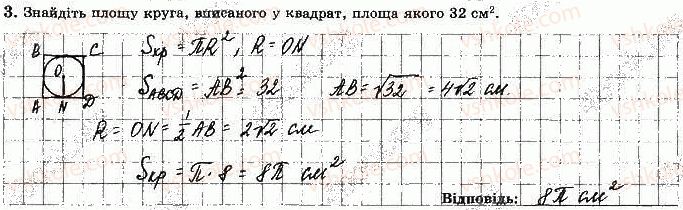 3. Знайдіть площу круга, вписаного у квадрат, площа якого 32 см².
B C Sкр = πR², R = ON
O
A N D SABCD = AB² = 32 AB = √32 = 4√2 см.
R = ON = 1/2 AB = 2√2 см
Sкр = π · 8 = 8π см²
Відповідь: 8π см²